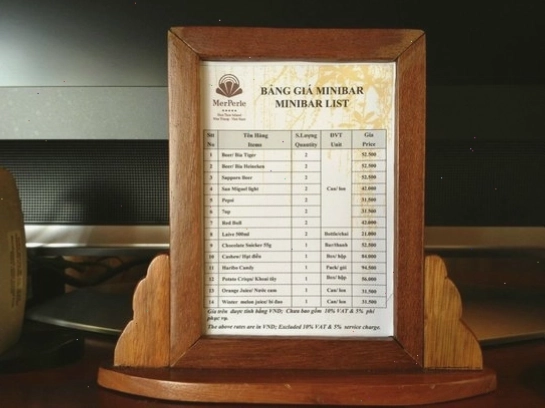 MerPerle
BẢNG GIÁ MINIBAR
MINIBAR LIST
Stt Tên Hàng S.Lượng ĐVT Giá
No Items Quantity Unit Price
1 Beer/ Bia Tiger 2 52.500
2 Beer/ Bia Heineken 2 52.500
3 Sapporo Beer 2 52.500
4 San Miguel light 2 Can/ lon
5 Pepsi 2 31.500
6 7up 2 31.500
7 Red Bull 2 42.000
8 Laive 500ml 2 Bottle/chai 21.000
9 Chocolate Snicker 1 Bar/thanh 52.500
10 Cashew/ Hạt điều 1 Box/ hộp 84.000
11 Haribo Candy 1 Pack/ gói 94.500
12 Potato Crisps/ Khoai tây 1 Box/ hộp
13 Orange Juice/ Nước cam 1 Can/ lon 31.500
14 Winter melon juice/ bí đao 1 Can/ lon 31.500
Giá trên được tính bằng VND; Chưa bao gồm 10% VAT & 5% phí
phục vụ.
The above rates are in VND; Excluded 10% VAT & 5% service charge.